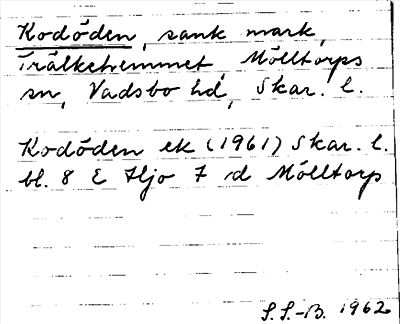 Kodöden, sank mark,
Trälkehemmet, Mölltorps
sn, Vadsbo hd, Skar. l.
Kodöden ek (1961) Skar. l.
bl. 8 E Hjo 7 d Mölltorp
S.S.-B. 1962